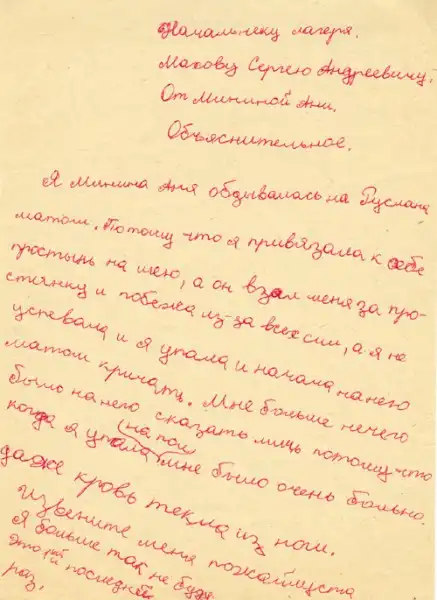 Началнику лагеря.
Махову Сергею Андреевичу.
От Мининой Ани.
Объяснительное.
Я Минина Аня обзывалась на Руслана
матом. Потому что я привязала к себе
простынь на шею, а он взял меня за про-
стянку и побежа из-за всех сил, а я не
успевала и я упала и начала на него
матом кричать. Мне больше нечего
было на него сказать лишь потому-что
когда я упала (на пол) мне было очень больно.
даже кровь текла из ноги.
Извените меня пожайлуста
я больше так не буду
это последней
раз.